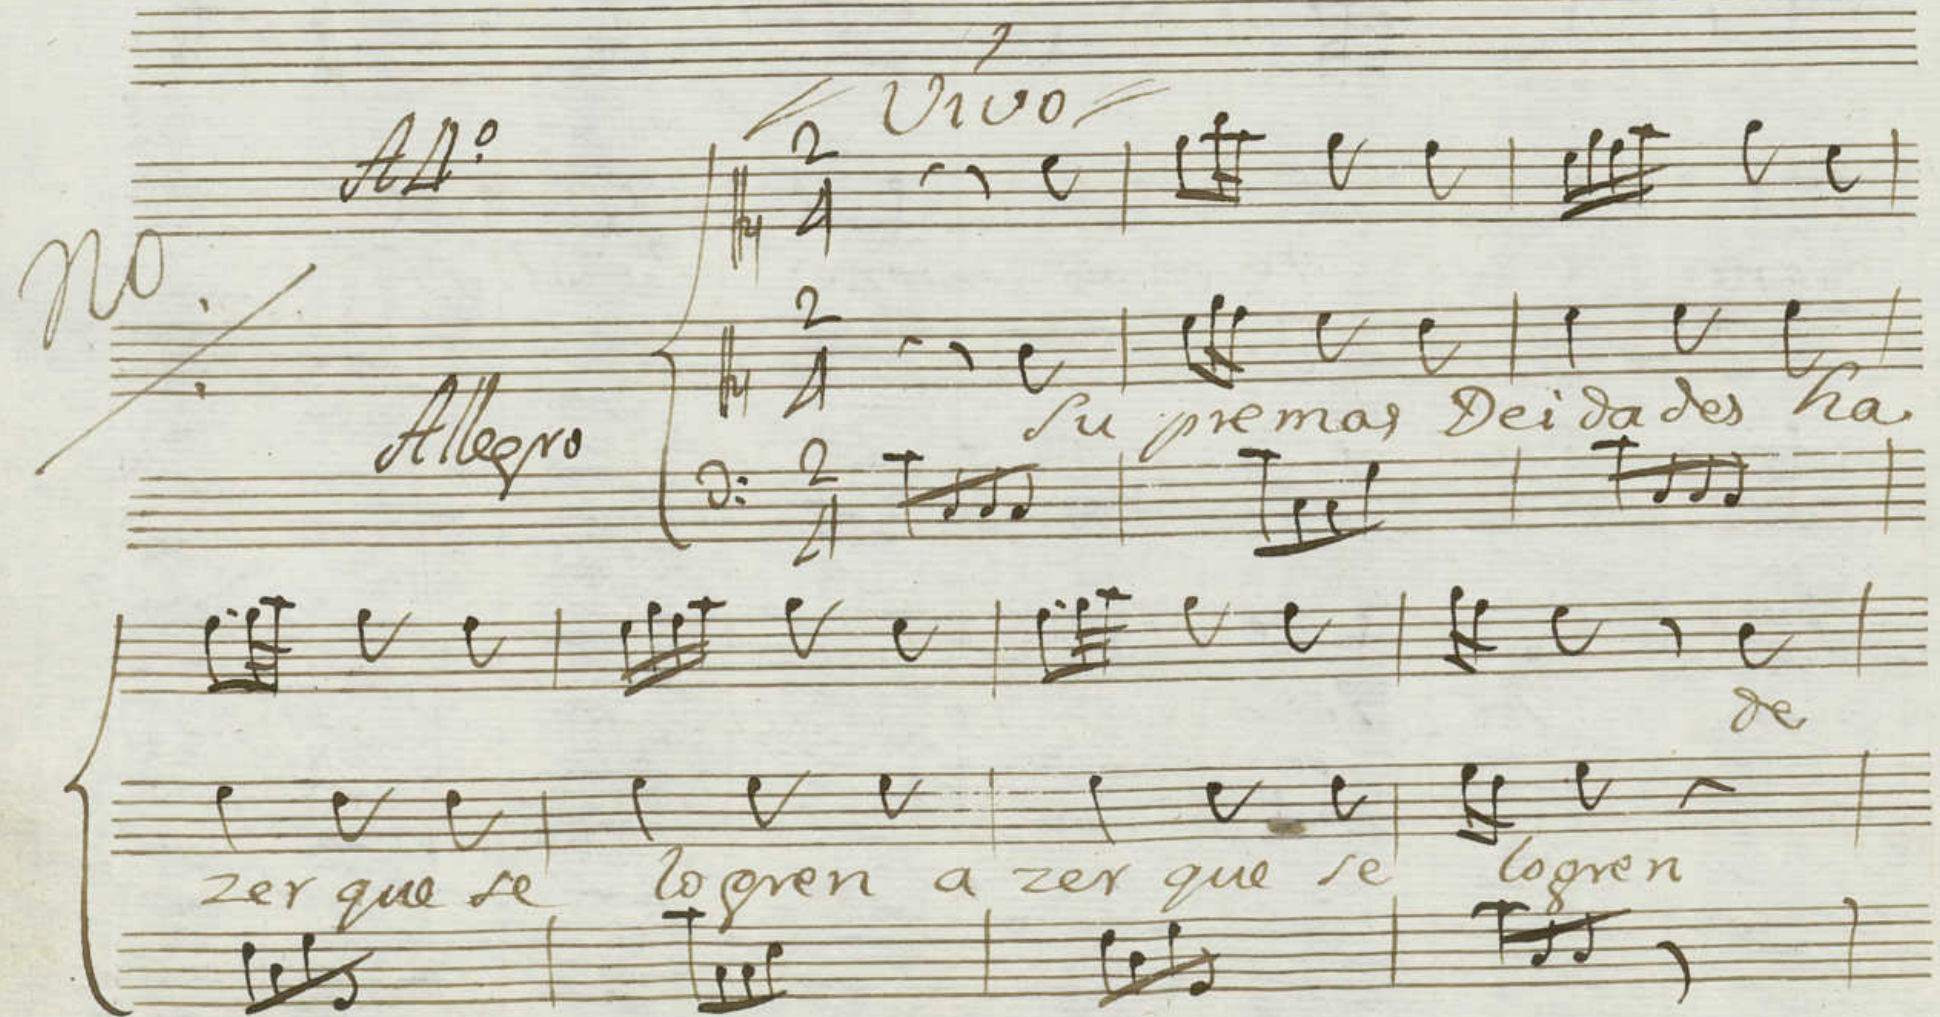 Vivo
All.º
No
Allegro
Su premas Deidades ha
de
zer que se logren a zer que se logren